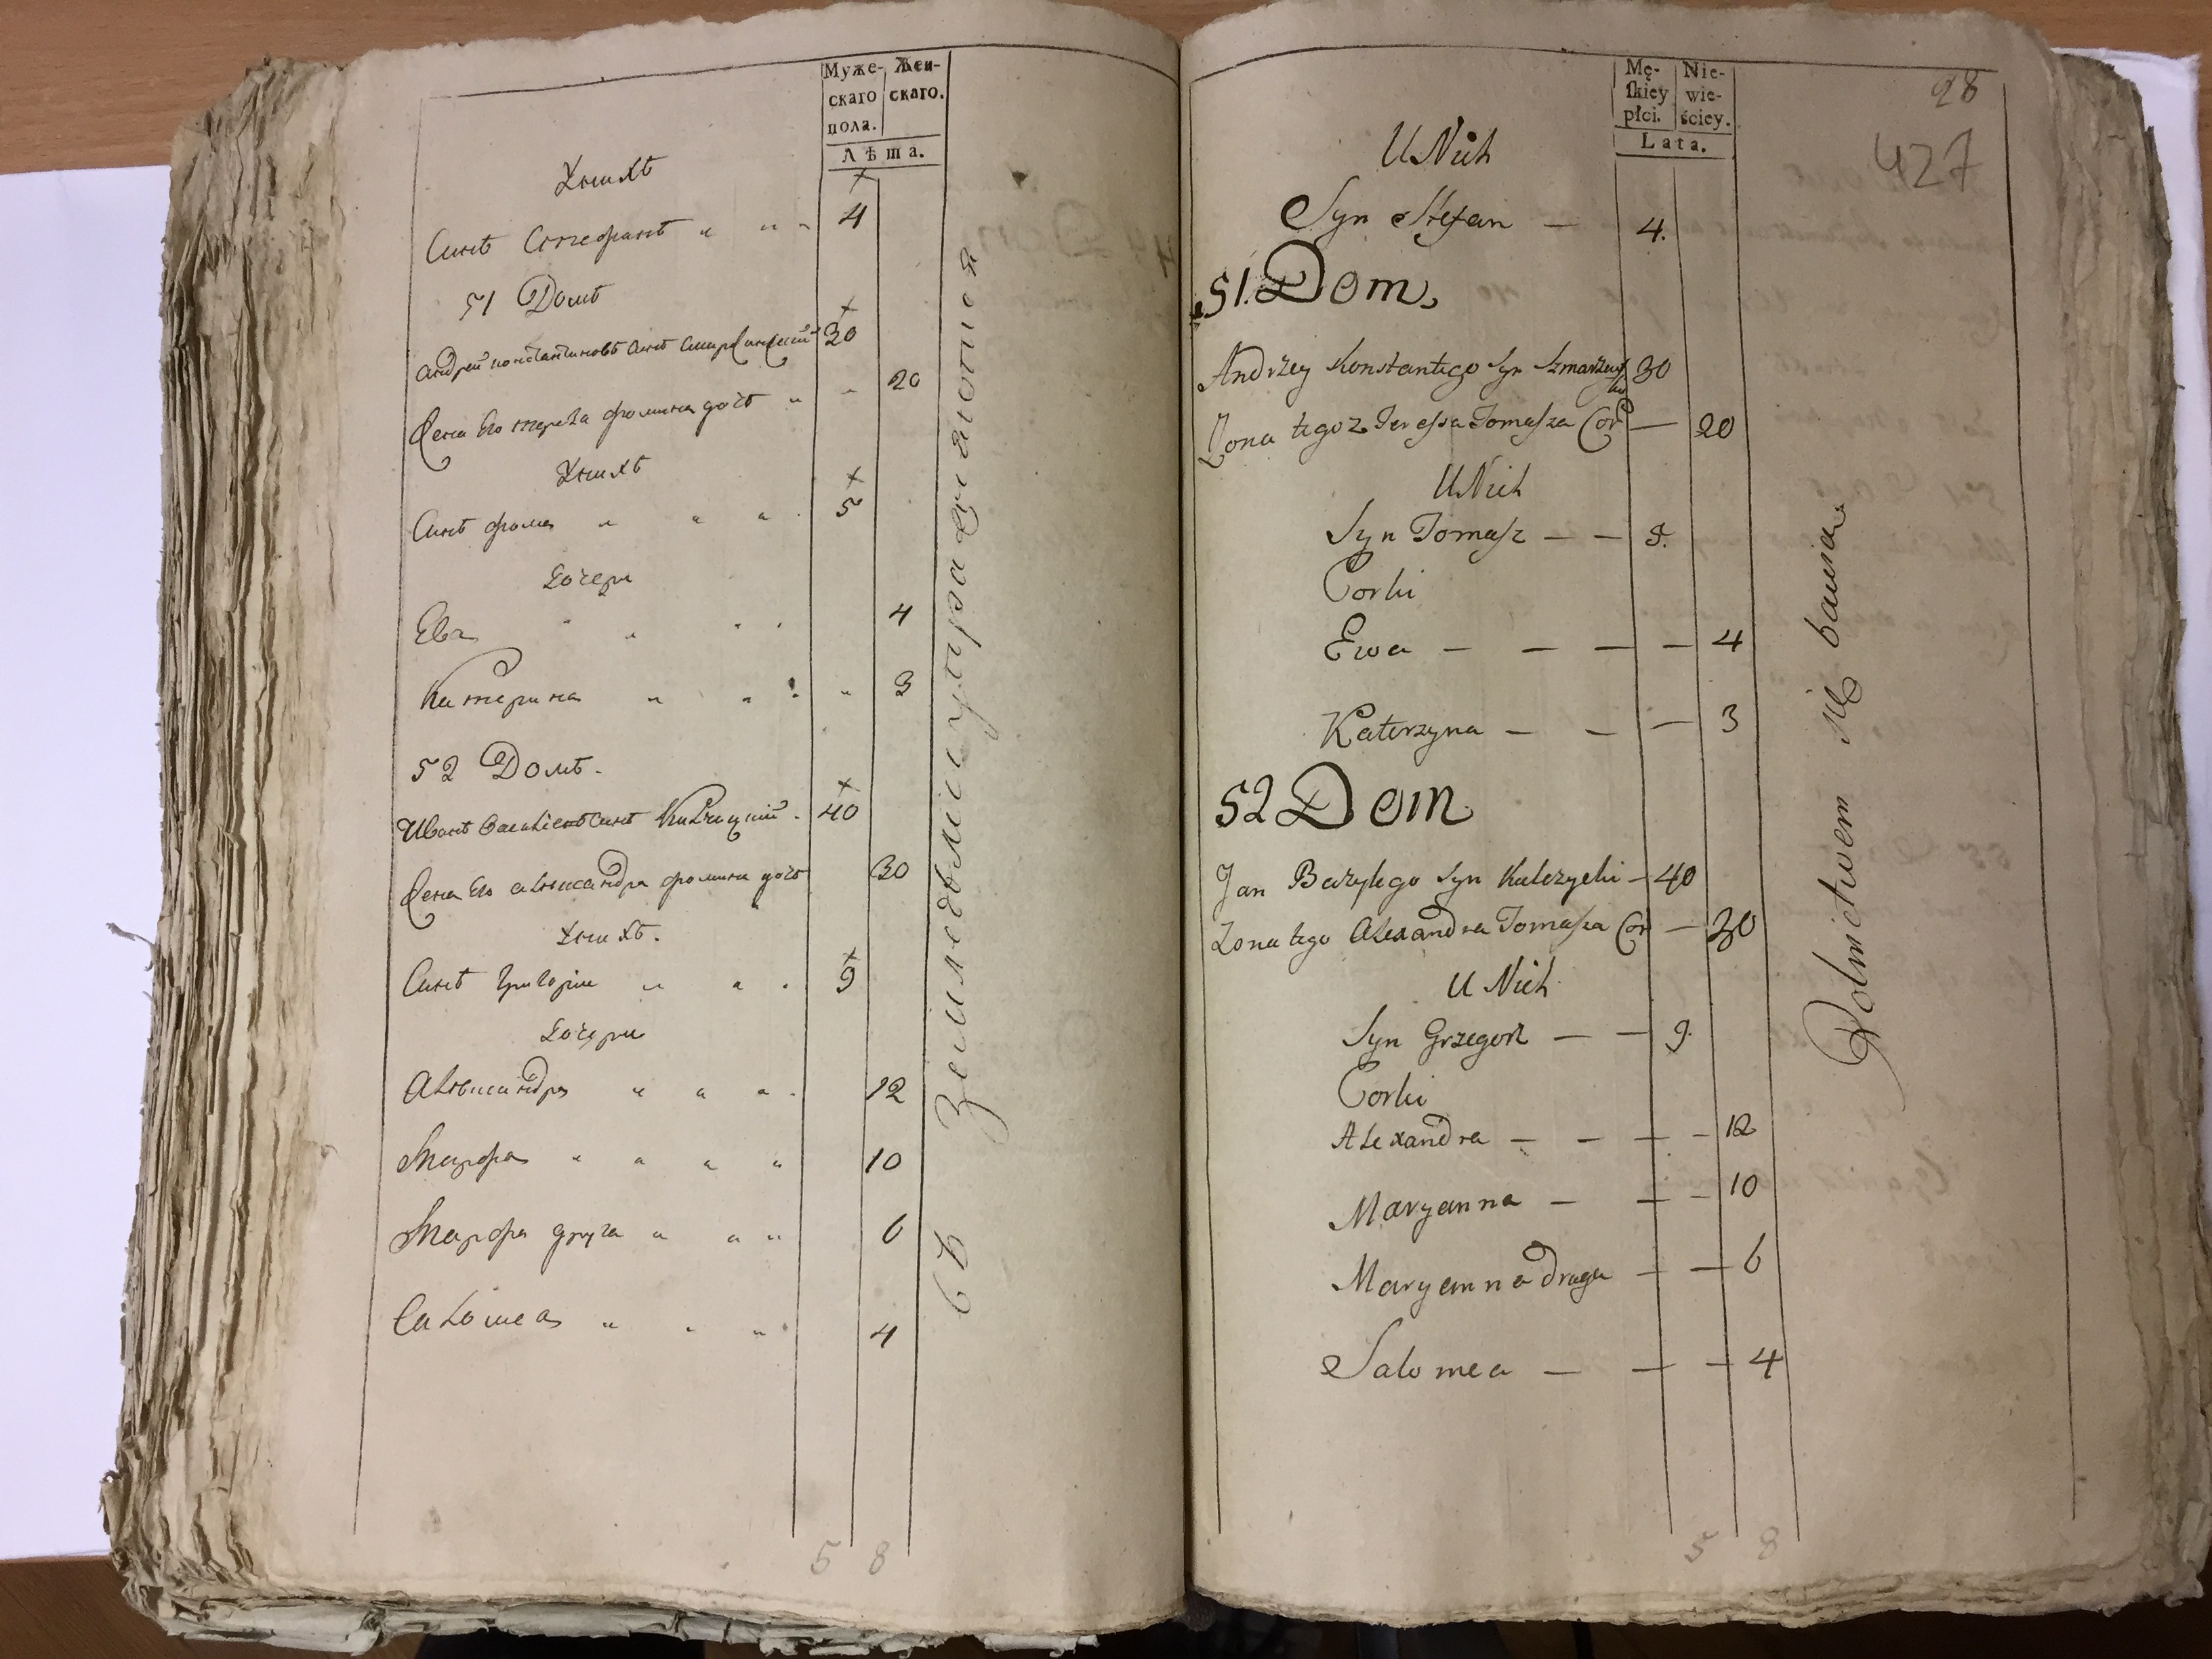 Муже-
скаго
пола.
Жен-
скаго.
Лѣта.
Унихъ
Синъ Стефанъ " " " 4
51 Домъ
Андрей Константиновъ Синъ 30
Жена Его Тереза Фомина дочъ " " 20
Унихъ
Синъ Фома " " " 5
Дочери
Ева " " " " 4
Катерина " " " " 3
52 Домъ.
Иванъ Василіевъ Синъ Кулчицкий. 40
Жена Его Алѣксандра Фомина дочъ 30
Унихъ.
Синъ Григорій " " " 9
Дочери
Алѣксандра " " " 12
Марфа " " " " 10
Марфа друга " " " 6
Саломеа " " " 4
5 8
Земледѣлиі упражняются
67
Mę-
skiey
płci.
Nie-
wie-
ściey.
Lata.
28
427
U Nich
Syn Stefan — 4.
51. Dom,
Andrzey Konstantego Syn 30
Zona tegoz Teressa Tomasza Cor — 20
U Nich
Syn Tomasz — — 5.
Corki
Ewa — — — — 4
Katerzyna — — — 3
52 Dom
Jan Bazylego Syn Kulczycki — 40
Zona tego Alexandra Tomasza Cor — 30
U Nich
Syn Grzegorz — — 9.
Corki
Alexandra — — — — 12
Maryanna — — — 10
Maryanna druga — — 6
Salomea — — — 4
5 8
Rolnictwem się bawią